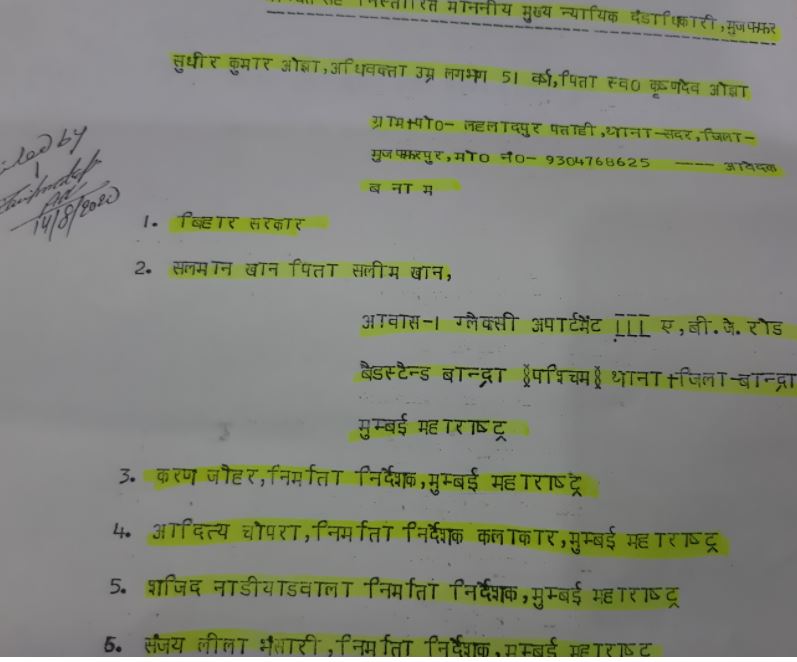 निस्तारित माननीय मुख्य न्यायिक दंडाधिकारी,मुजफ्फर
सुधीर कुमार ओझा,अधिवक्ता उम्र लगभग 51 वर्ष,पिता स्व0 कृष्णदेव ओझा
ग्राम+पो0- लहलादपुर पताही,थाना-सदर,जिला-
मुजफ्फरपुर,मो0 नं0- 9304768625 ---- आवेदक
ब ना म
1. बिहार सरकार
2. सलमान खान पिता सलीम खान,
आवास-1 ग्लैक्सी अपार्टमेंट III ए,बी.जे.रोड
बैडस्टैन्ड बान्द्रा §पश्चिम§ थाना+जिला-बान्द्रा
मुम्बई महाराष्ट्र
3. करण जोहर,निर्माता निर्देशक,मुम्बई महाराष्ट्र
4. आदित्य चोपरा,निर्माता निर्देशक कलाकार,मुम्बई महाराष्ट्र
5. शजिद नाडीयाडवाला निर्माता निर्देशक,मुम्बई महाराष्ट्र
6. संजय लीला भंसारी,निर्माता निर्देशक,मुम्बई महाराष्ट्र
by
14/8/2020